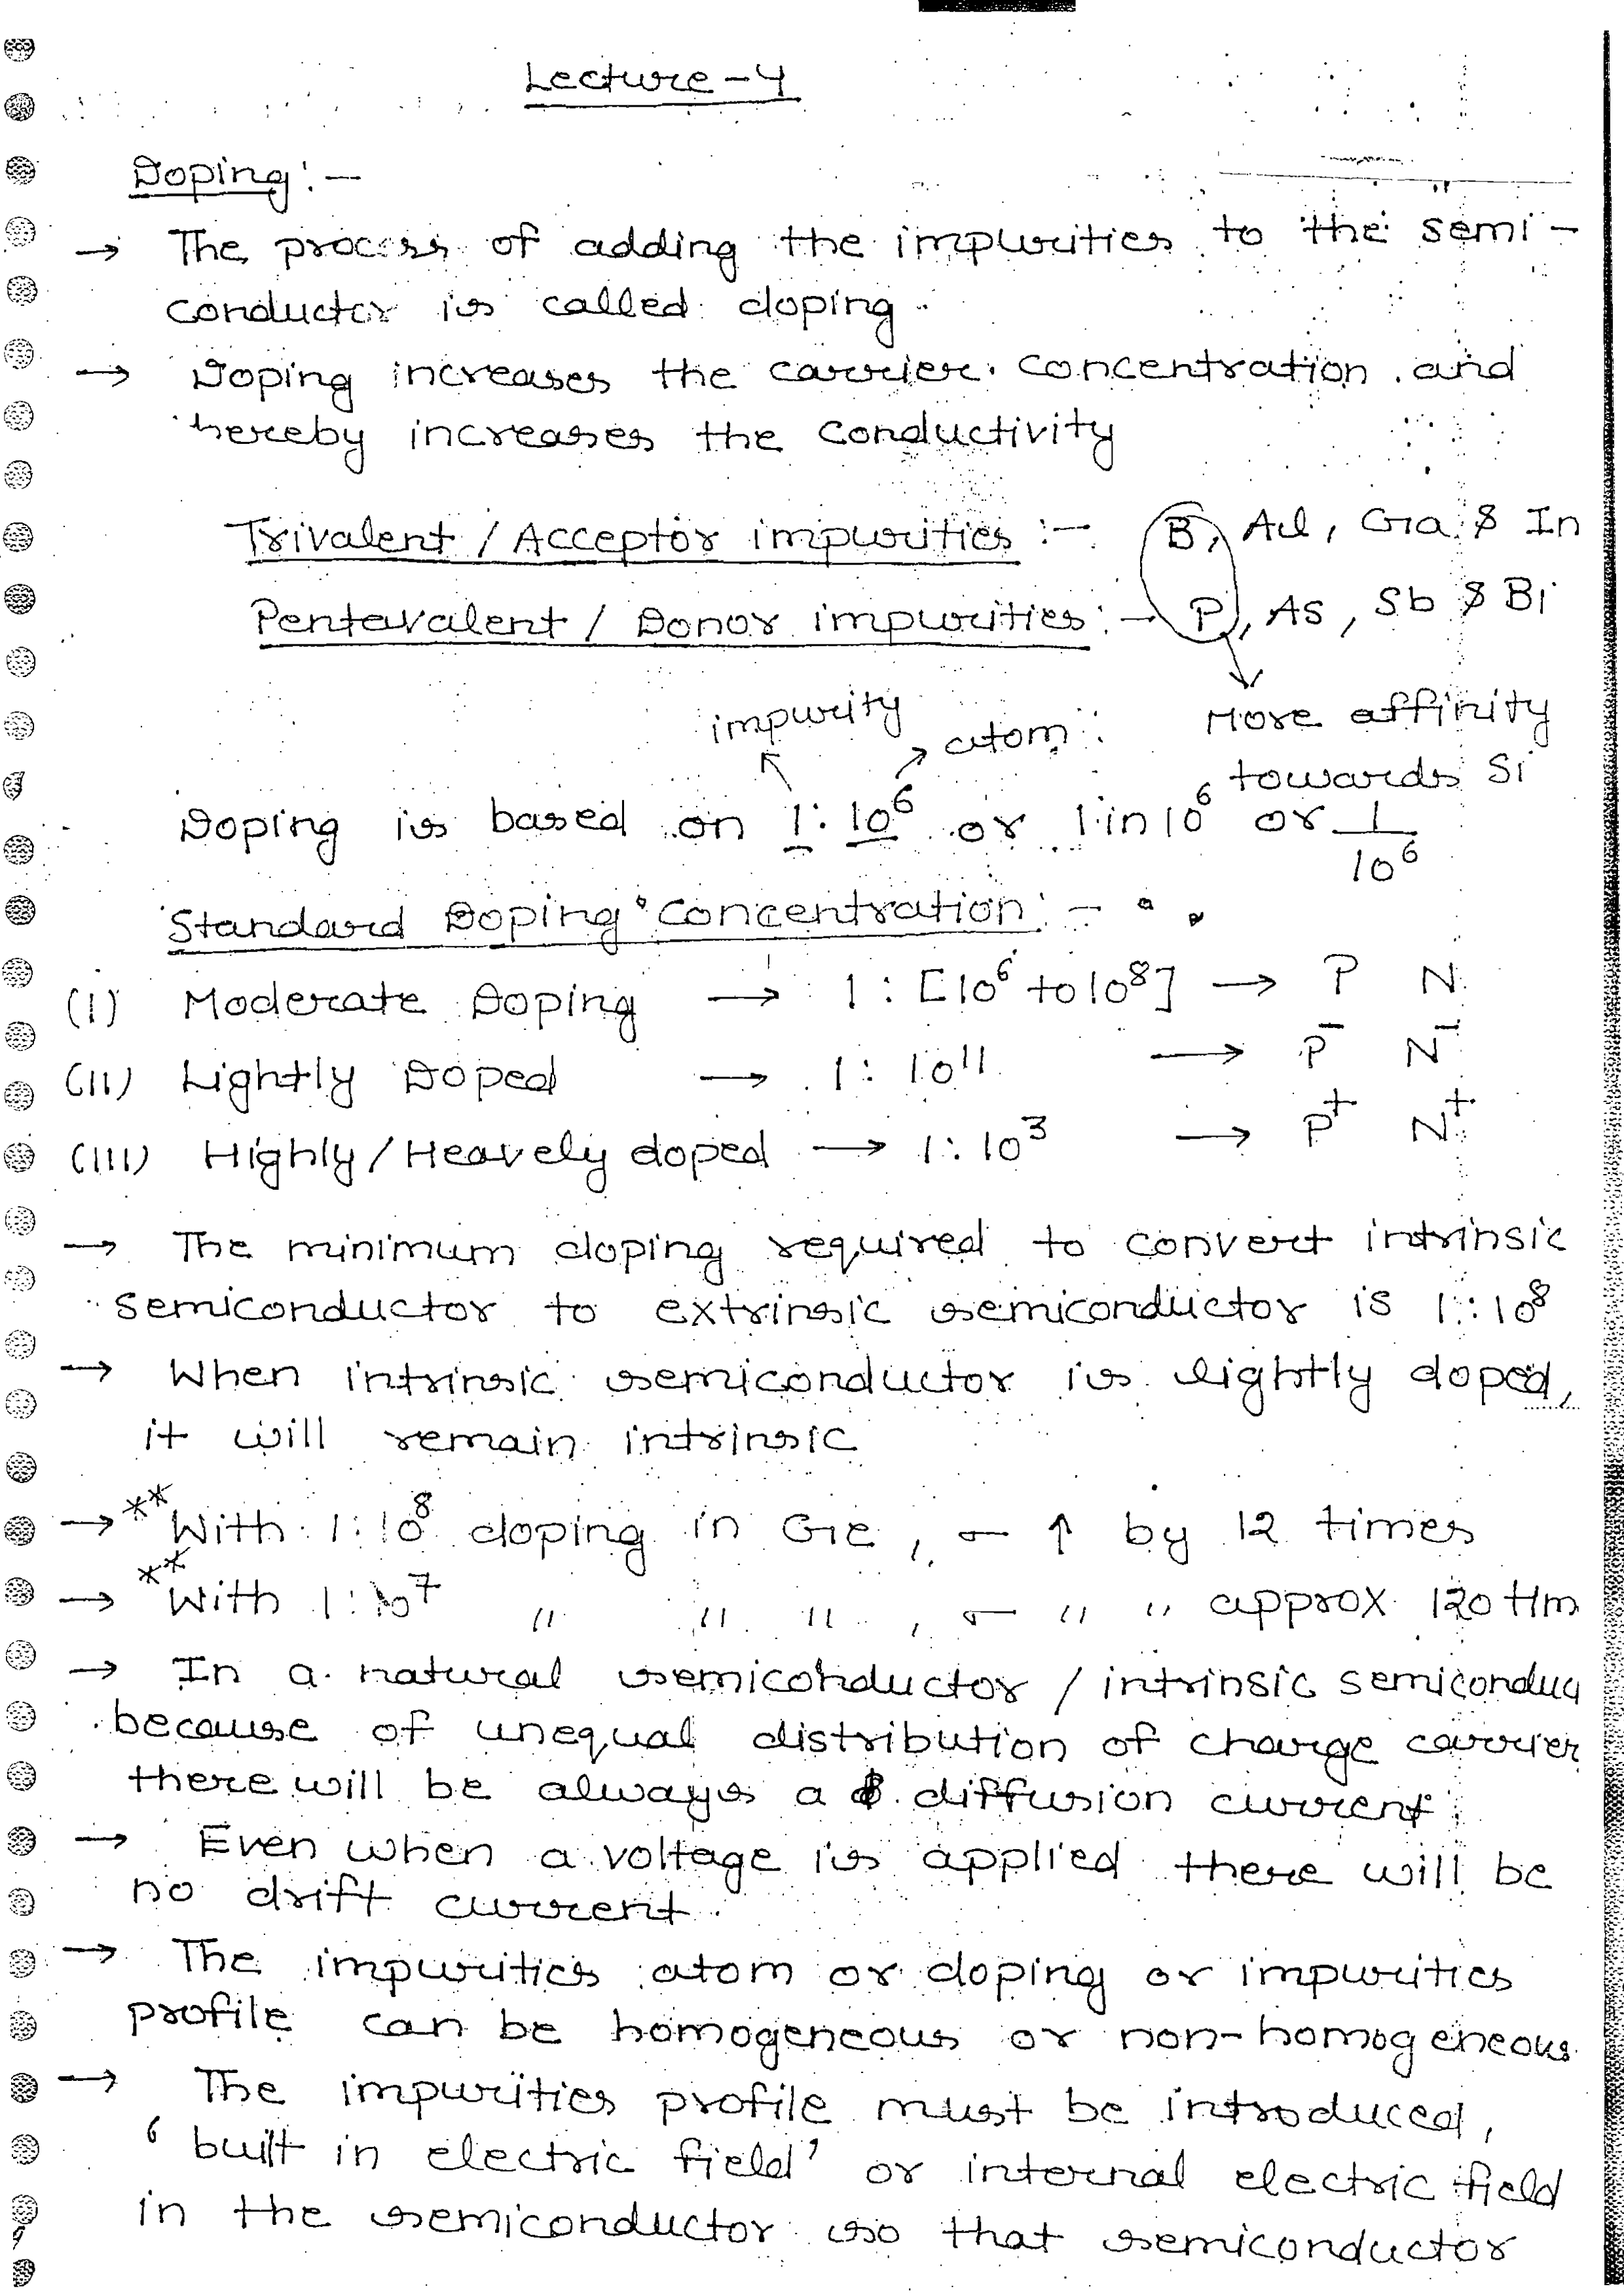 Lecture-4
Doping:-
→ The process of adding the impurities to the semi-
conductor is called doping.
→ Doping increases the carrier concentration and
hereby increases the conductivity
Trivalent / Acceptor impurities :- B, Al, Ga & In
Pentavalent / Donor impurities :- P, As, Sb & Bi
impurity atom More affinity
towards Si
Doping is based on 1:10⁶ or 1 in 10⁶ or 1/10⁶
Standard Doping Concentration :-
(I) Moderate Doping → 1 : [10⁶ to 10⁸] → P N
(II) Lightly Doped → 1 : 10¹¹ → P⁻ N⁻
(III) Highly/Heavely doped → 1:10³ → P⁺ N⁺
→ The minimum doping required to convert intrinsic
semiconductor to extrinsic semiconductor is 1:10⁸
→ When intrinsic semiconductor is lightly doped,
it will remain intrinsic
→ ** With 1:10⁸ doping in Ge, σ ↑ by 12 times
→ ** With 1:10⁷ " " " , σ " " approx 120 tim
→ In a natural semiconductor / intrinsic semiconduc
because of unequal distribution of charge carrier
there will be always a diffusion current.
→ Even when a voltage is applied there will be
no drift current.
→ The impurities atom or doping or impurities
profile can be homogeneous or non-homogeneous
→ The impurities profile must be introduced,
'built in electric field' or internal electric field
in the semiconductor so that semiconductor